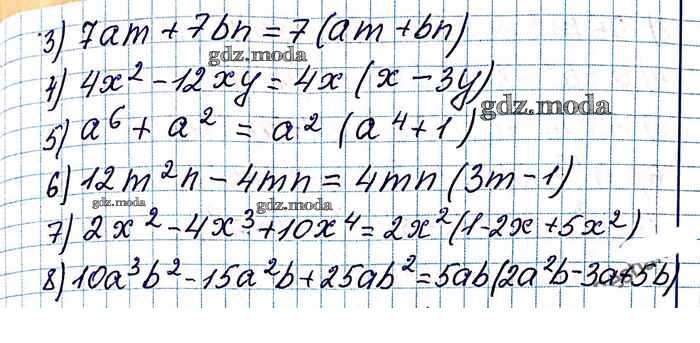 3) 7am + 7bn = 7 (am + bn)
gdz.moda
4) 4x² - 12xy = 4x (x - 3y)
gdz.moda
5) a⁶ + a² = a² (a⁴ + 1)
6) 12m²n - 4mn = 4mn (3m - 1)
gdz.moda gdz.moda
7) 2x² - 4x³ + 10x⁴ = 2x² (1 - 2x + 5x²)
8) 10a³b² - 15a²b + 25ab² = 5ab (2a²b - 3a+5b)